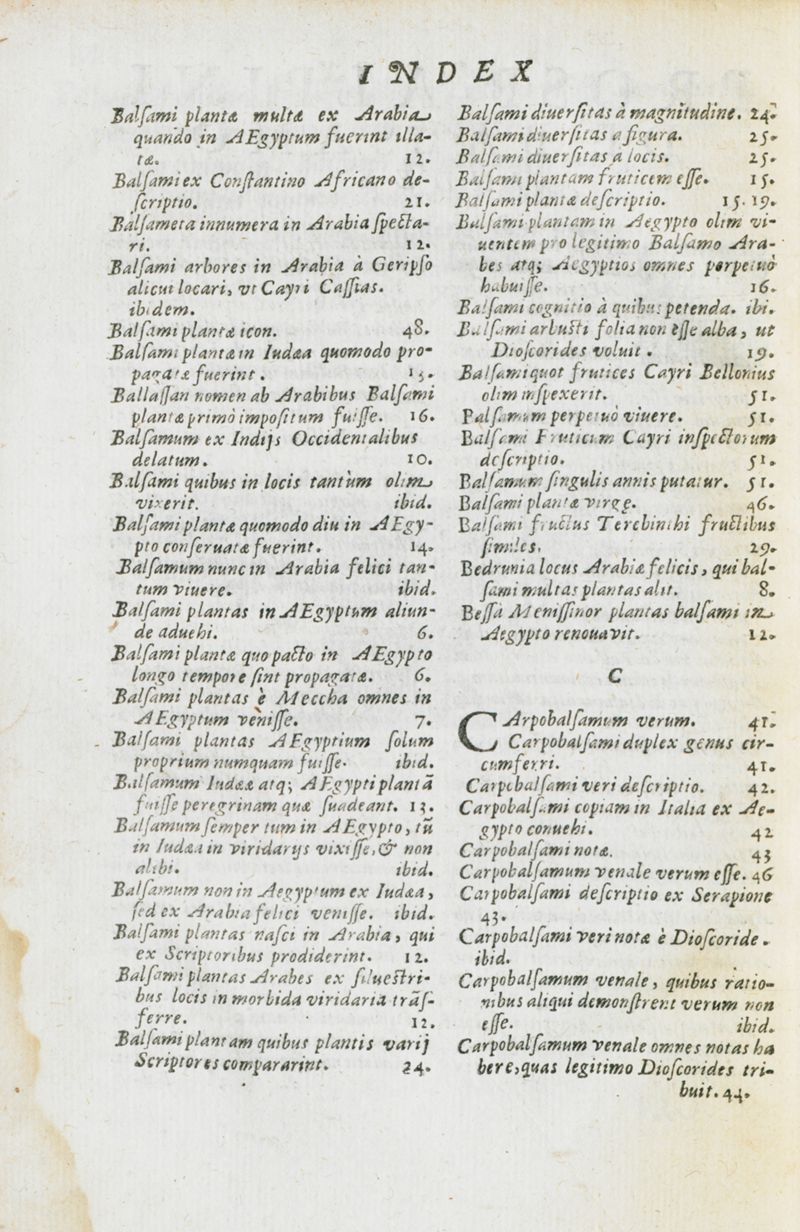 INDEX
Balſami plantæ multæ ex Arabia
quando in AEgyptum fuerint illa-
tæ. 12.
Balſami ex Conſtantino Africano de-
ſcriptio. 21.
Balſameta innumera in Arabia ſpecta-
ri. 12.
Balſami arbores in Arabia à Geripſo
alicui locari, vt Cayri Caſſias.
ibidem.
Balſami plantæ icon. 48.
Balſami plantæ in Iudæa quomodo pro-
pagatæ fuerint. 13.
Ballaſſan nomen ab Arabibus Balſami
plantæ primò impoſitum fuiſſe. 16.
Balſamum ex Indijs Occidentalibus
delatum. 10.
Balſami quibus in locis tantùm olim
vixerit. ibid.
Balſami plantæ quomodo diu in AEgy-
pto conſeruatæ fuerint. 14.
Balſamum nunc in Arabia felici tan-
tum viuere. ibid.
Balſami plantas in AEgyptum aliun-
de aduehi. 6.
Balſami plantæ quo pacto in AEgypto
longo tempore ſint propagatæ. 6.
Balſami plantas è Meccha omnes in
AEgyptum veniſſe. 7.
Balſami plantas AEgyptium ſolum
proprium numquam fuiſſe. ibid.
Balſamum Iudææ atq; AEgypti plantã
fuiſſe peregrinam quæ ſuadeant. 13.
Balſamum ſemper tum in AEgypto, tũ
in Iudæa in viridarijs vixiſſe, & non
alibi. ibid.
Balſamum non in Aegyptum ex Iudæa,
ſed ex Arabia felici veniſſe. ibid.
Balſami plantas naſci in Arabia, qui
ex Scriptoribus prodiderint. 12.
Balſami plantas Arabes ex ſilueſtri-
bus locis in morbida viridaria trãſ-
ferre. 12.
Balſami plantam quibus plantis varij
Scriptores compararint. 24.
Balſami diuerſitas à magnitudine. 24.
Balſami diuerſitas a figura. 25.
Balſami diuerſitas a locis. 25.
Balſami plantam fruticem eſſe. 15.
Balſami plantæ deſcriptio. 15. 19.
Balſami plantam in Aegypto olim vi-
uentem pro legitimo Balſamo Ara-
bes atq; Aegyptios omnes perpetuò
habuiſſe. 16.
Balſami cognitio à quibus petenda. ibi.
Balſami arbuſti folia non eſſe alba, ut
Dioſcorides voluit. 19.
Balſami quot frutices Cayri Bellonius
olim inſpexerit. 51.
Balſamum perpetuò viuere. 51.
Balſami Fruticum Cayri inſpectorum
deſcriptio. 51.
Balſamum ſingulis annis putatur. 51.
Balſami plantæ virgę. 46.
Balſami fructus Terebinthi fructibus
ſimiles. 29.
Bedrunia locus Arabiæ felicis, qui bal-
ſami multas plantas alit. 8.
Beſſa Meniſſinor plantas balſami in
Aegypto renouavit. 12.
C
CArpobalſamum verum. 41.
Carpobalſami duplex genus cir-
cumferri. 41.
Carpobalſami veri deſcriptio. 42.
Carpobalſami copiam in Italia ex Ae-
gypto conuehi. 42
Carpobalſami notæ. 43
Carpobalſamum venale verum eſſe. 46
Carpobalſami deſcriptio ex Serapione
43.
Carpobalſami veri notæ è Dioſcoride.
ibid.
Carpobalſamum venale, quibus ratio-
nibus aliqui demonſtrent verum non
eſſe. ibid.
Carpobalſamum venale omnes notas ha
bere, quas legitimo Dioſcorides tri-
buit. 44.